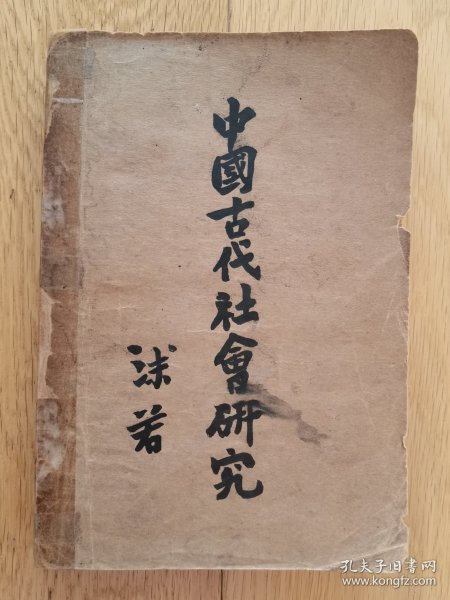 中國古代社會研究
沫若
孔夫子旧书网
www.kongfz.com